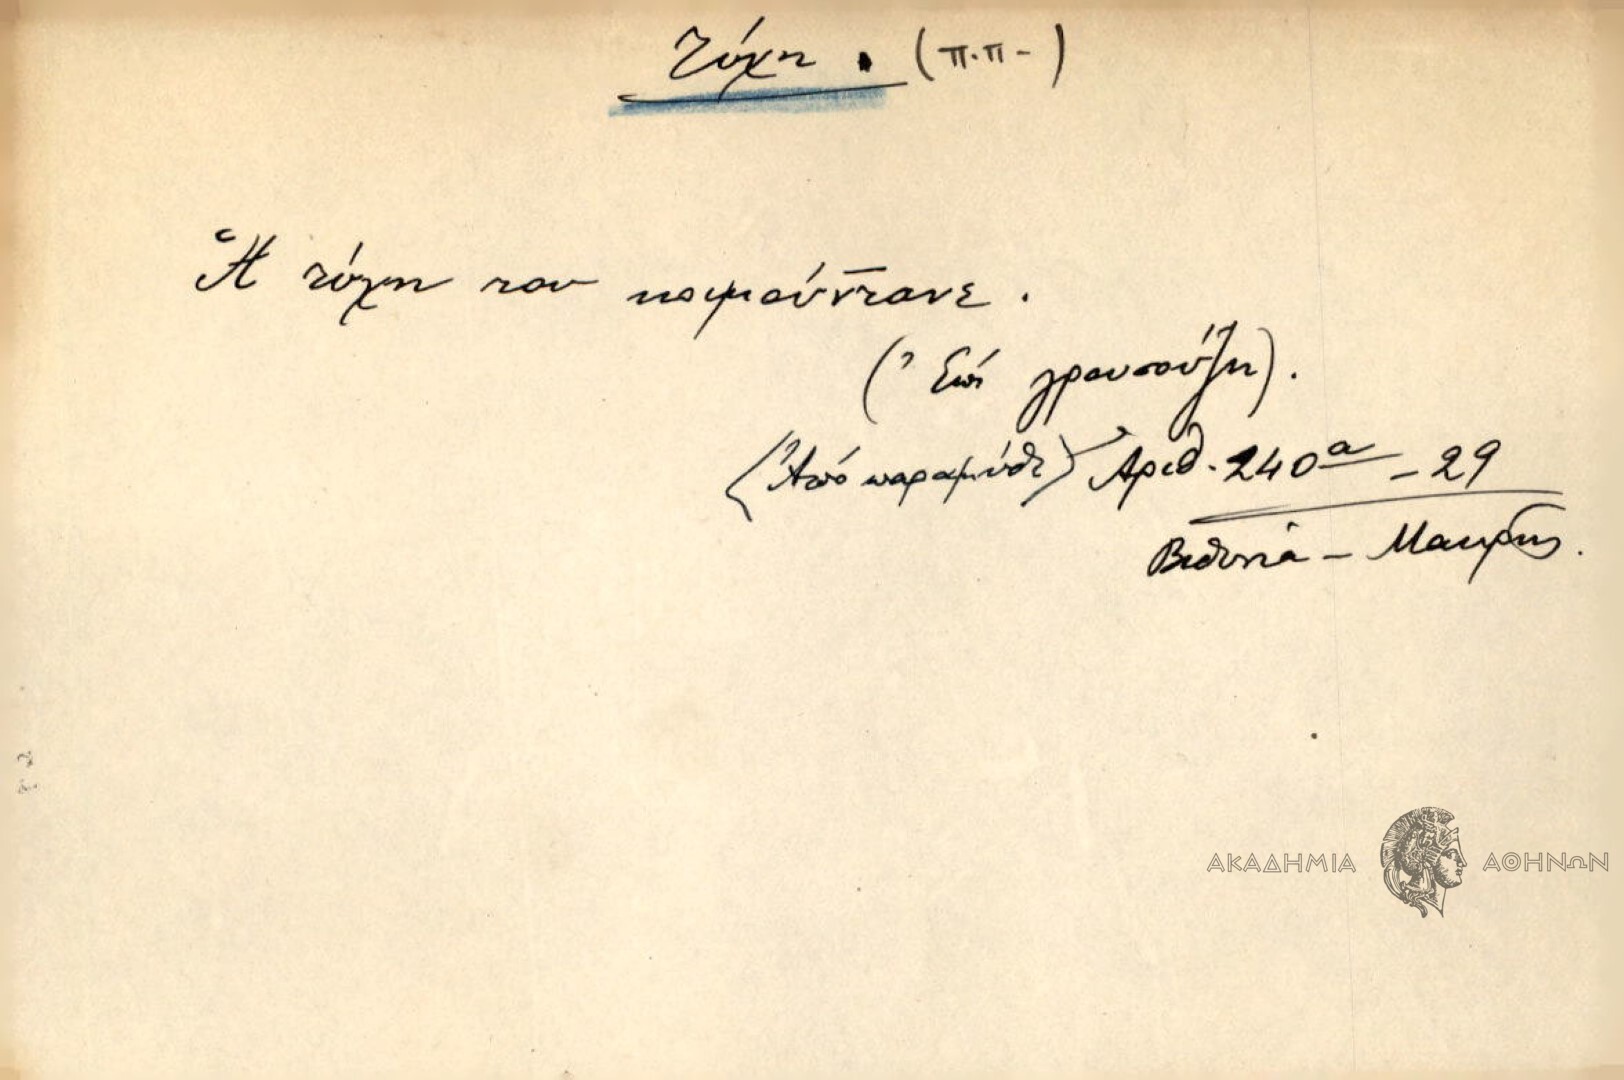 τύχη . (π.π-)
Ἡ τύχη του κοιμούντανε .
(Ἐπί γρουσούζη).
<Ἀπό παραμύθι> Ἀριθ. 240α - 29
Βιθυνία - Μακρῆς.
ΑΚΑΔΗΜΙΑ ΑΘΗΝΩΝ